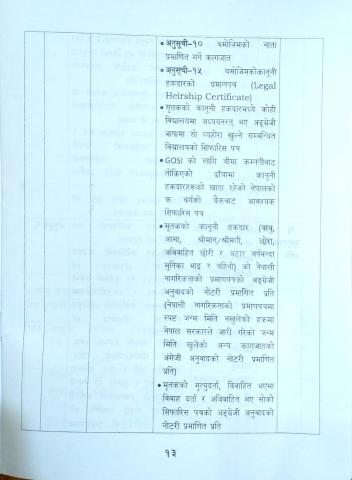 • अनुसूची-१० बमोजिमको नाता
प्रमाणित गर्ने कागजात
• अनुसूची-१५ बमोजिमकोकानूनी
हकदारको प्रमाणपत्र (Legal
Heirship Certificate)
• मृतकको कानूनी हकदारमध्ये कोही
विद्यालयमा अध्ययनरत् भए अङ्ग्रेजी
भाषामा सो व्यहोरा खुल्ने सम्बन्धित
विद्यालयको सिफारिस पत्र
• GOSI को लागि बीमा कम्पनीबाट
तोकिएको ढाँचामा कानूनी
हकदारहरूको खाता रहेको नेपालको
क वर्गको बैंकबाट आवश्यक
सिफारिस पत्र
• मृतकको कानूनी हकदार (बाबु,
आमा, श्रीमान्/श्रीमती, छोरा,
अविवाहित छोरी र अठार वर्षभन्दा
मुनिका भाइ र बहिनी) को नेपाली
नागरिकताको प्रमाणपत्रको अङ्ग्रेजी
अनुवादको नोटरी प्रमाणित प्रति
(नेपाली नागरिकताको प्रमाणपत्रमा
स्पष्ट जन्म मिति नखुलेको हकमा
नेपाल सरकारले जारी गरेको जन्म
मिति खुलेको अन्य कागजातको
अंग्रेजी अनुवादको नोटरी प्रमाणित
प्रति)
• मृतकको मृत्युदर्ता, विवाहित भएमा
विवाह दर्ता र अविवाहित भए सोको
सिफारिस पत्रको अङ्ग्रेजी अनुवादको
नोटरी प्रमाणित प्रति
१३